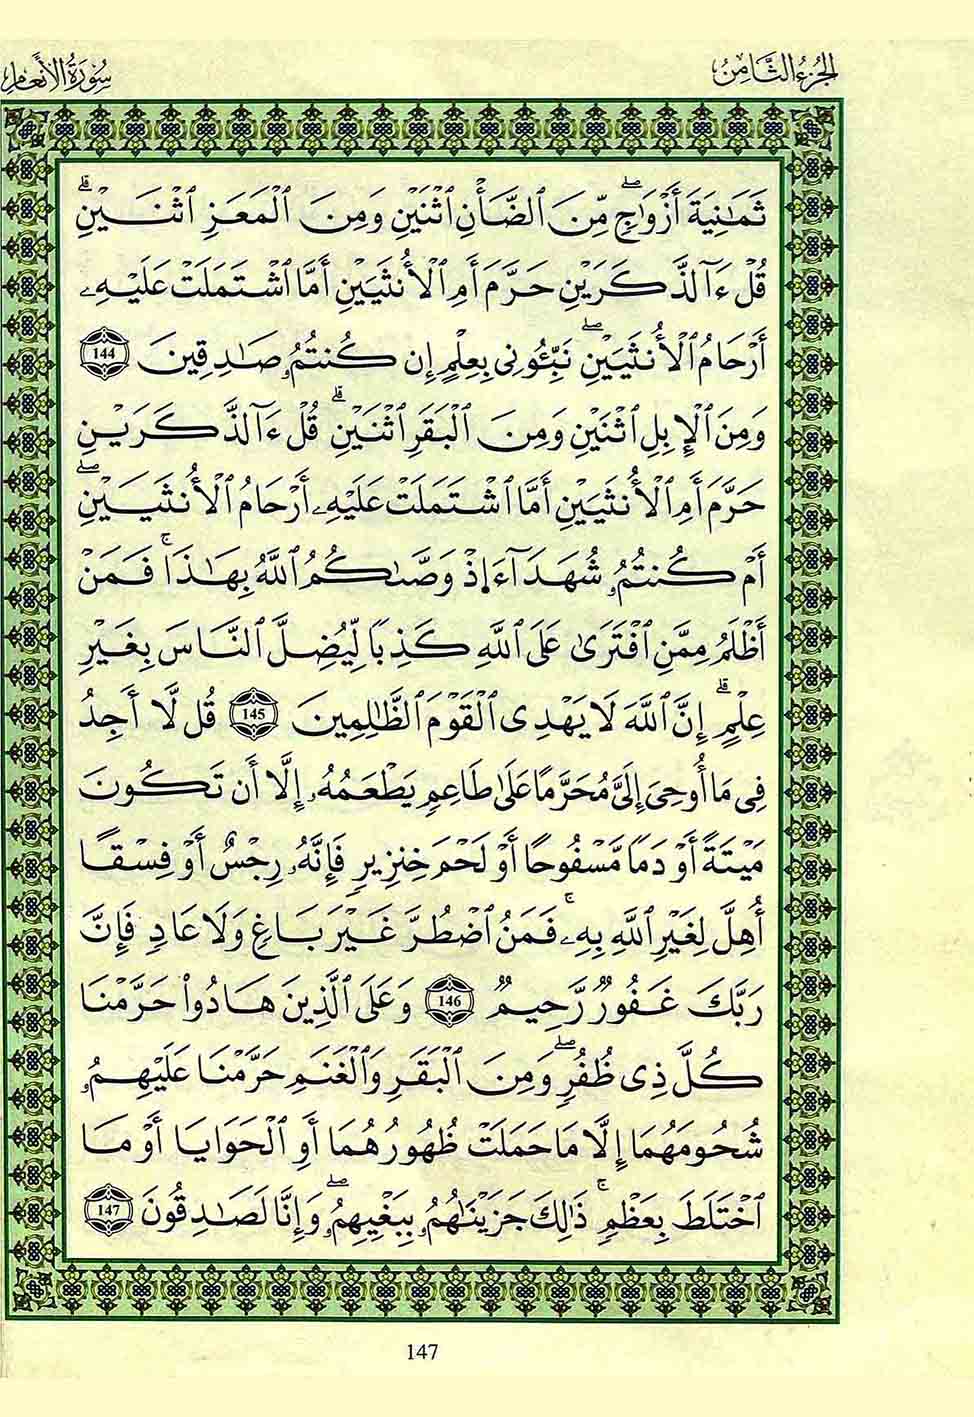 الجزء الثامن
سورة الأنعام
ثَمَٰنِيَةَ أَزْوَٰجٖۖ مِّنَ اَ۬لضَّأْنِ اِ۪ثْنَيْنِ وَمِنَ اَ۬لْمَعَزِ اِ۪ثْنَيْنِۗ
قُلْ ءَآلذَّكَرَيْنِ حَرَّمَ أَمِ اِ۬لْأُنثَيَيْنِ أَمَّا اَ۪شْتَمَلَتْ عَلَيْهِۦ
أَرْحَامُ اُ۬لْأُنثَيَيْنِۖ نَبِّـُٔونِى بِعِلْمٍ إِن كُنتُمُۥ صَٰدِقِينَ 144
وَمِنَ اَ۬لْإِبِلِ اِ۪ثْنَيْنِ وَمِنَ اَ۬لْبَقَرِ اِ۪ثْنَيْنِۗ قُلْ ءَآلذَّكَرَيْنِ
حَرَّمَ أَمِ اِ۬لْأُنثَيَيْنِ أَمَّا اَ۪شْتَمَلَتْ عَلَيْهِۦ أَرْحَامُ اُ۬لْأُنثَيَيْنِۖ
أَمْ كُنتُمُۥ شُهَدَآءَ اِ۪ذْ وَصَّىٰكُمُ اُ۬للَّهُ بِهَٰذَاۚ فَمَنْ
أَظْلَمُ مِمَّنِ اِ۪فْتَرَىٰ عَلَى اَ۬للَّهِ كَذِبًا لِّيُضِلَّ اَ۬لنَّاسَ بِغَيْرِ
عِلْمٍۗ إِنَّ اَ۬للَّهَ لَا يَهْدِى اِ۬لْقَوْمَ اَ۬لظَّٰلِمِينَ 145 قُل لَّا أَجِدُ
فِى مَا أُوحِىَ إِلَىَّ مُحَرَّمًا عَلَىٰ طَاعِمٍ يَطْعَمُهُۥ إِلَّا أَن تَكُونَ
مَيْتَةً أَوْ دَمًا مَّسْفُوحًا أَوْ لَحْمَ خِنزِيرٍ فَإِنَّهُۥ رِجْسٌ أَوْ فِسْقًا
أُهِلَّ لِغَيْرِ اِ۬للَّهِ بِهِۦۚ فَمَنُ اُ۟ضْطُرَّ غَيْرَ بَاغٍ وَلَا عَادٍ فَإِنَّ
رَبَّكَ غَفُورٌ رَّحِيمٌ 146 وَعَلَى اَ۬لَّذِينَ هَادُواْ حَرَّمْنَا
كُلَّ ذِى ظُفُرٍۖ وَمِنَ اَ۬لْبَقَرِ وَالْغَنَمِ حَرَّمْنَا عَلَيْهِمُۥ
شُحُومَهُمَا إِلَّا مَا حَمَلَتْ ظُهُورُهُمَا أَوِ اِ۬لْحَوَايَا أَوْ مَا
اَ۪خْتَلَطَ بِعَظْمٍۚ ذَٰلِكَ جَزَيْنَٰهُمُۥ بِبَغْيِهِمُۥۖ وَإِنَّا لَصَٰدِقُونَ 147
147